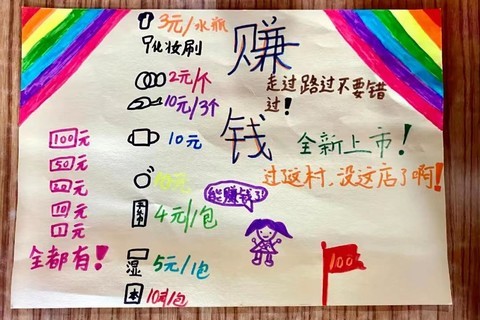 3元/水瓶
化妆刷
2元/个
10元/3个
10元
4元/1包
湿 5元/1包
本 10元/包
赚钱
走过路过不要错
过!
全新上市!
过了这村,没这店了啊!
能赚钱了
100
100元
50元
20元
10元
1元
全都有!